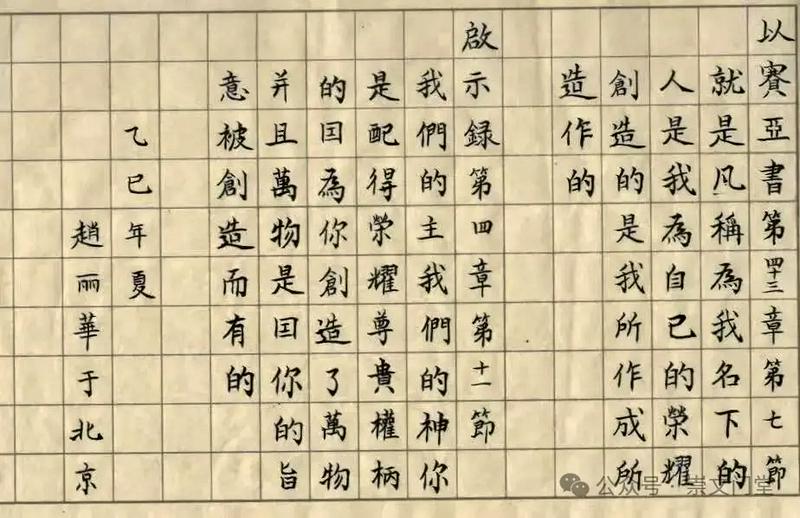 以賽亞書第四十三章第七節
就是凡稱為我名下的
人是我為自己的榮耀
創造的是我所作成所
造作的
啟示録第四章第十一節
我們的主我們的神你
是配得榮耀尊貴權柄
的囯為你創造了萬物
并且萬物是囯你的旨
意被創造而有的
乙巳年夏
趙丽華于北京
公众号·崇文门堂